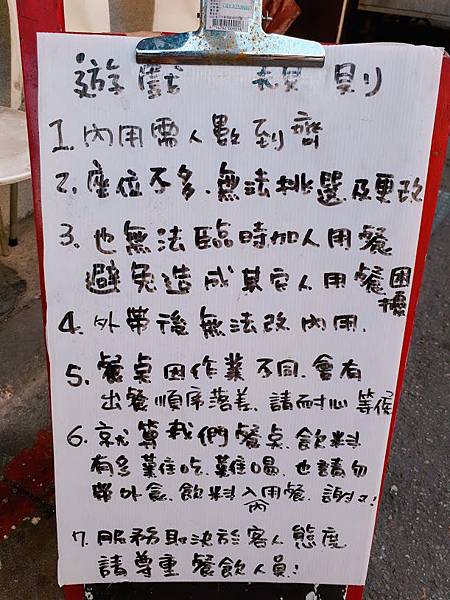 遊戲 規則
1. 內用需人數到齊
2. 座位不多、無法挑選及更改
3. 也無法臨時加人用餐
避免造成其客人用餐困擾
4. 外帶後無法改內用.
5. 餐桌因作業不同.會有
出餐順序落差. 請耐心等侯
6. 就算我們餐桌.飲料
有多難吃.難喝.也請勿
帶外食.飲料入內用餐. 謝々!
7. 服務取決於客人態度
請尊重餐飲人員!